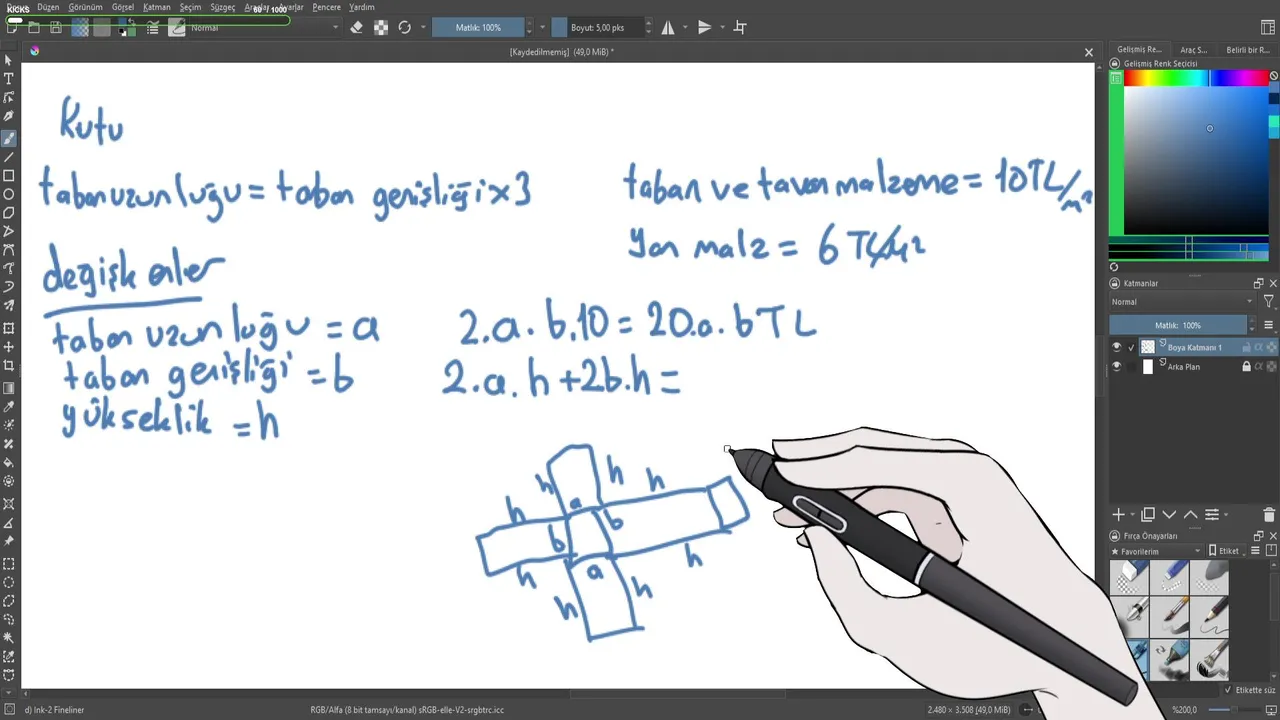 KICKS
60 / 1000
Düzen Görünüm Görsel Katman Seçim Süzgeç Araçlar Ayarlar Pencere Yardım
Normal
Matlık: 100%
Boyut: 5,00 pks
[Kaydedilmemiş] (49,0 MiB) *
Gelişmiş Re... Araç S... Belirli bir R...
Gelişmiş Renk Seçicisi
Kutu
taban uzunluğu = taban genişliği x 3
taban ve tavan malzeme = 10 TL/m²
Yan malz = 6 TL/m²
değişkenler
taban uzunluğu = a
taban genişliği = b
yükseklik = h
2.a.b.10 = 20.a.b TL
2.a.h + 2b.h =
h h h
h a
b b
h a h
h h
Katmanlar
Normal
Matlık: 100%
Boya Katmanı 1
Arka Plan
Fırça Önayarları
Favorilerim
Etiket
Etikette süz
d) Ink-2 Fineliner
RGB/Alfa (8 bit tamsayı/kanal) sRGB-elle-V2-srgbtrc.icc
2.480 × 3.508 (49,0 MiB)
%200,0